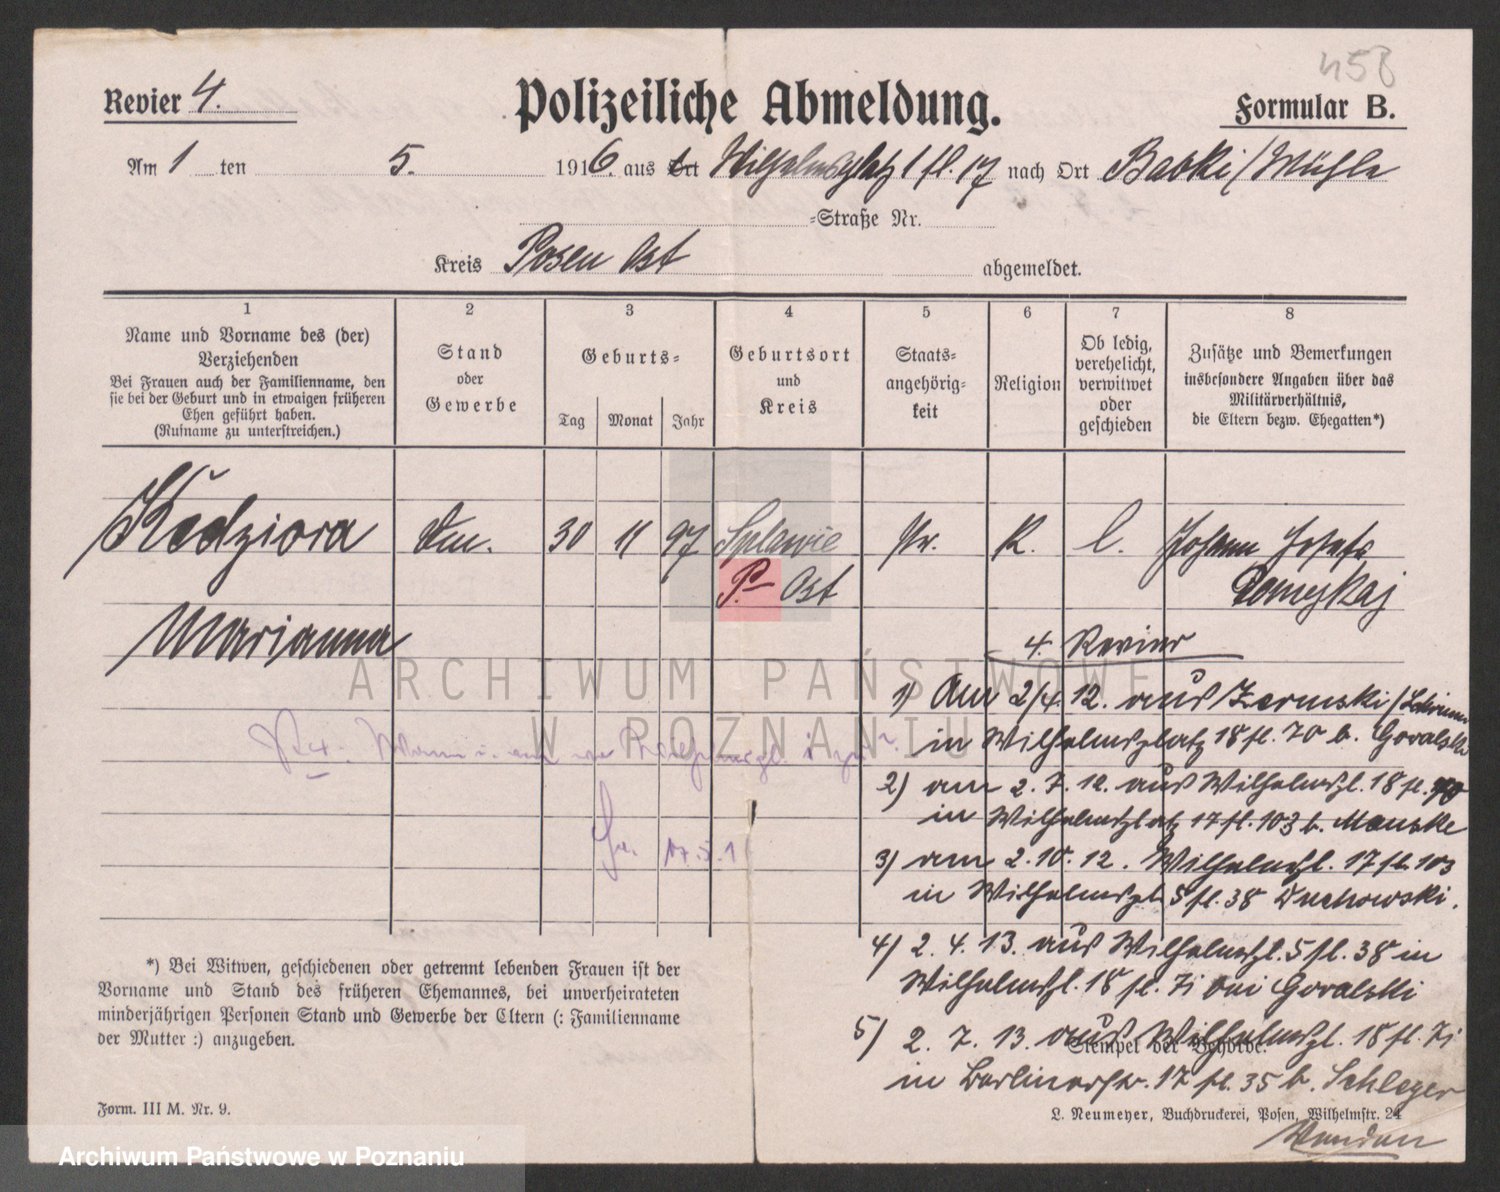 458
Revier 4.
Polizeiliche Abmeldung.
Formular B.
Am 1 ten 5. 1916. aus Ort Wilhelmsplatz 1 fl. 17 nach Ort Babki/Mühle
-Straße Nr.
Kreis Posen Ost abgemeldet.
1
Name und Vorname des (der)
Verziehenden
Bei Frauen auch der Familienname, den
sie bei der Geburt und in etwaigen früheren
Ehen geführt haben.
(Rufname zu unterstreichen.)
2
Stand
oder
Gewerbe
3
Geburts-
Tag Monat Jahr
4
Geburtsort
und
Kreis
5
Staats-
angehörig-
keit
6
Religion
7
Ob ledig,
verehelicht,
verwitwet
oder
geschieden
8
Zusätze und Bemerkungen
insbesondere Angaben über das
Militärverhältnis,
die Eltern bezw. Ehegatten*)
Kędziora 30 11 97 Splawie Pr. K. l. Johann Josefa
P.- Ost
Marianna
4. Revier
1) Am 2/4. 12. aus
in Wilhelmsplatz 18 fl. 70 b. Goralski
2) am 2. 7. 12. aus Wilhelmspl. 18 fl. 70
in Wilhelmsplatz 17 fl. 103 b. Manske
3) am 2. 10. 12. Wilhelmspl. 17 fl. 103
in Wilhelmspl. 5 fl. 38 Duchowski.
4) 2. 4. 13. aus Wilhelmspl. 5 fl. 38 in
Wilhelmspl. 18 fl. 71 bei Goralski
5) 2. 7. 13. aus Wilhelmspl. 18 fl. 71
in Berlinerstr. 17 fl. 35 b. Schleyer
Wenden
ARCHIWUM PAŃSTWOWE
W POZNANIU
*) Bei Witwen, geschiedenen oder getrennt lebenden Frauen ist der
Vorname und Stand des früheren Ehemannes, bei unverheirateten
minderjährigen Personen Stand und Gewerbe der Eltern (: Familienname
der Mutter :) anzugeben.
Stempel der Behörde.
Form. III M. Nr. 9.
L. Neumeyer, Buchdruckerei, Posen, Wilhelmstr. 24
Archiwum Państwowe w Poznaniu